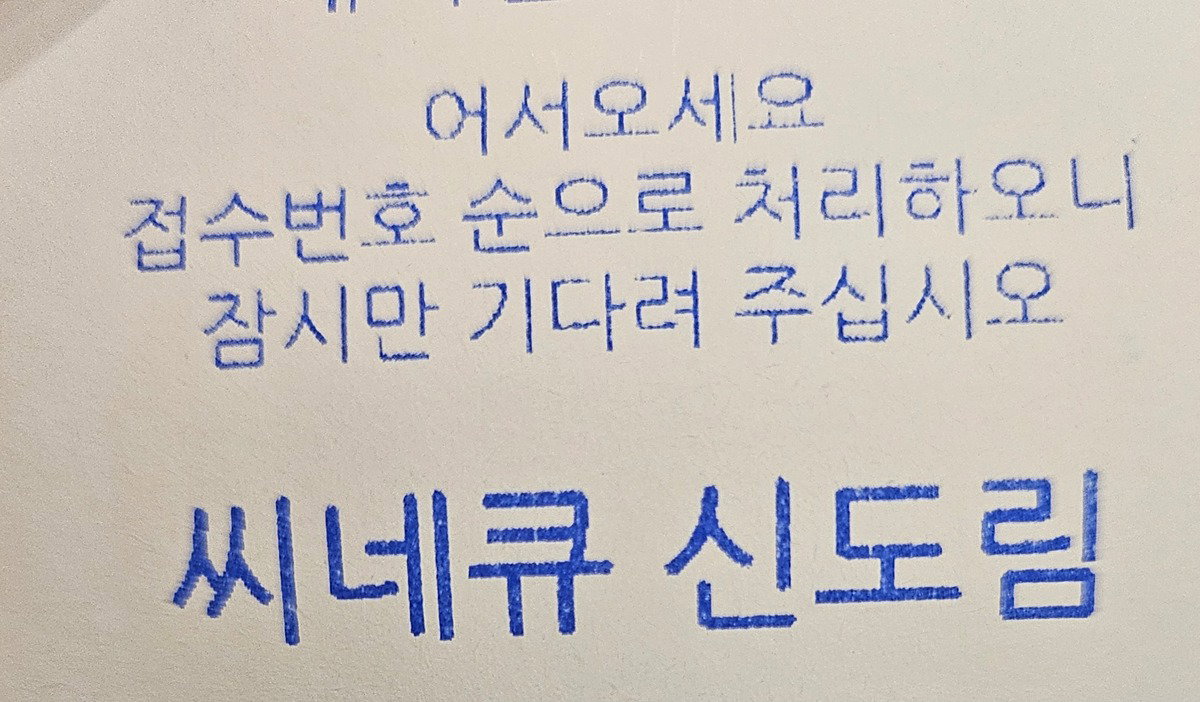 어서오세요
접수번호 순으로 처리하오니
잠시만 기다려 주십시오
씨네큐 신도림